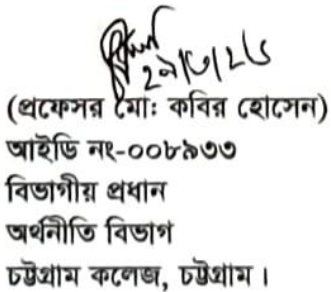 ২৯/৩/২৬
(প্রফেসর মোঃ কবির হোসেন)
আইডি নং-০০৮৯৩৩
বিভাগীয় প্রধান
অর্থনীতি বিভাগ
চট্টগ্রাম কলেজ, চট্টগ্রাম।